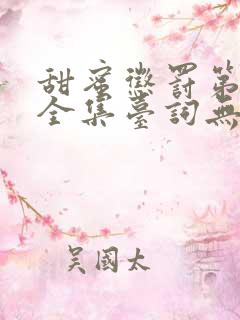 甜蜜懲罰第
全集臺詞無
吴國太